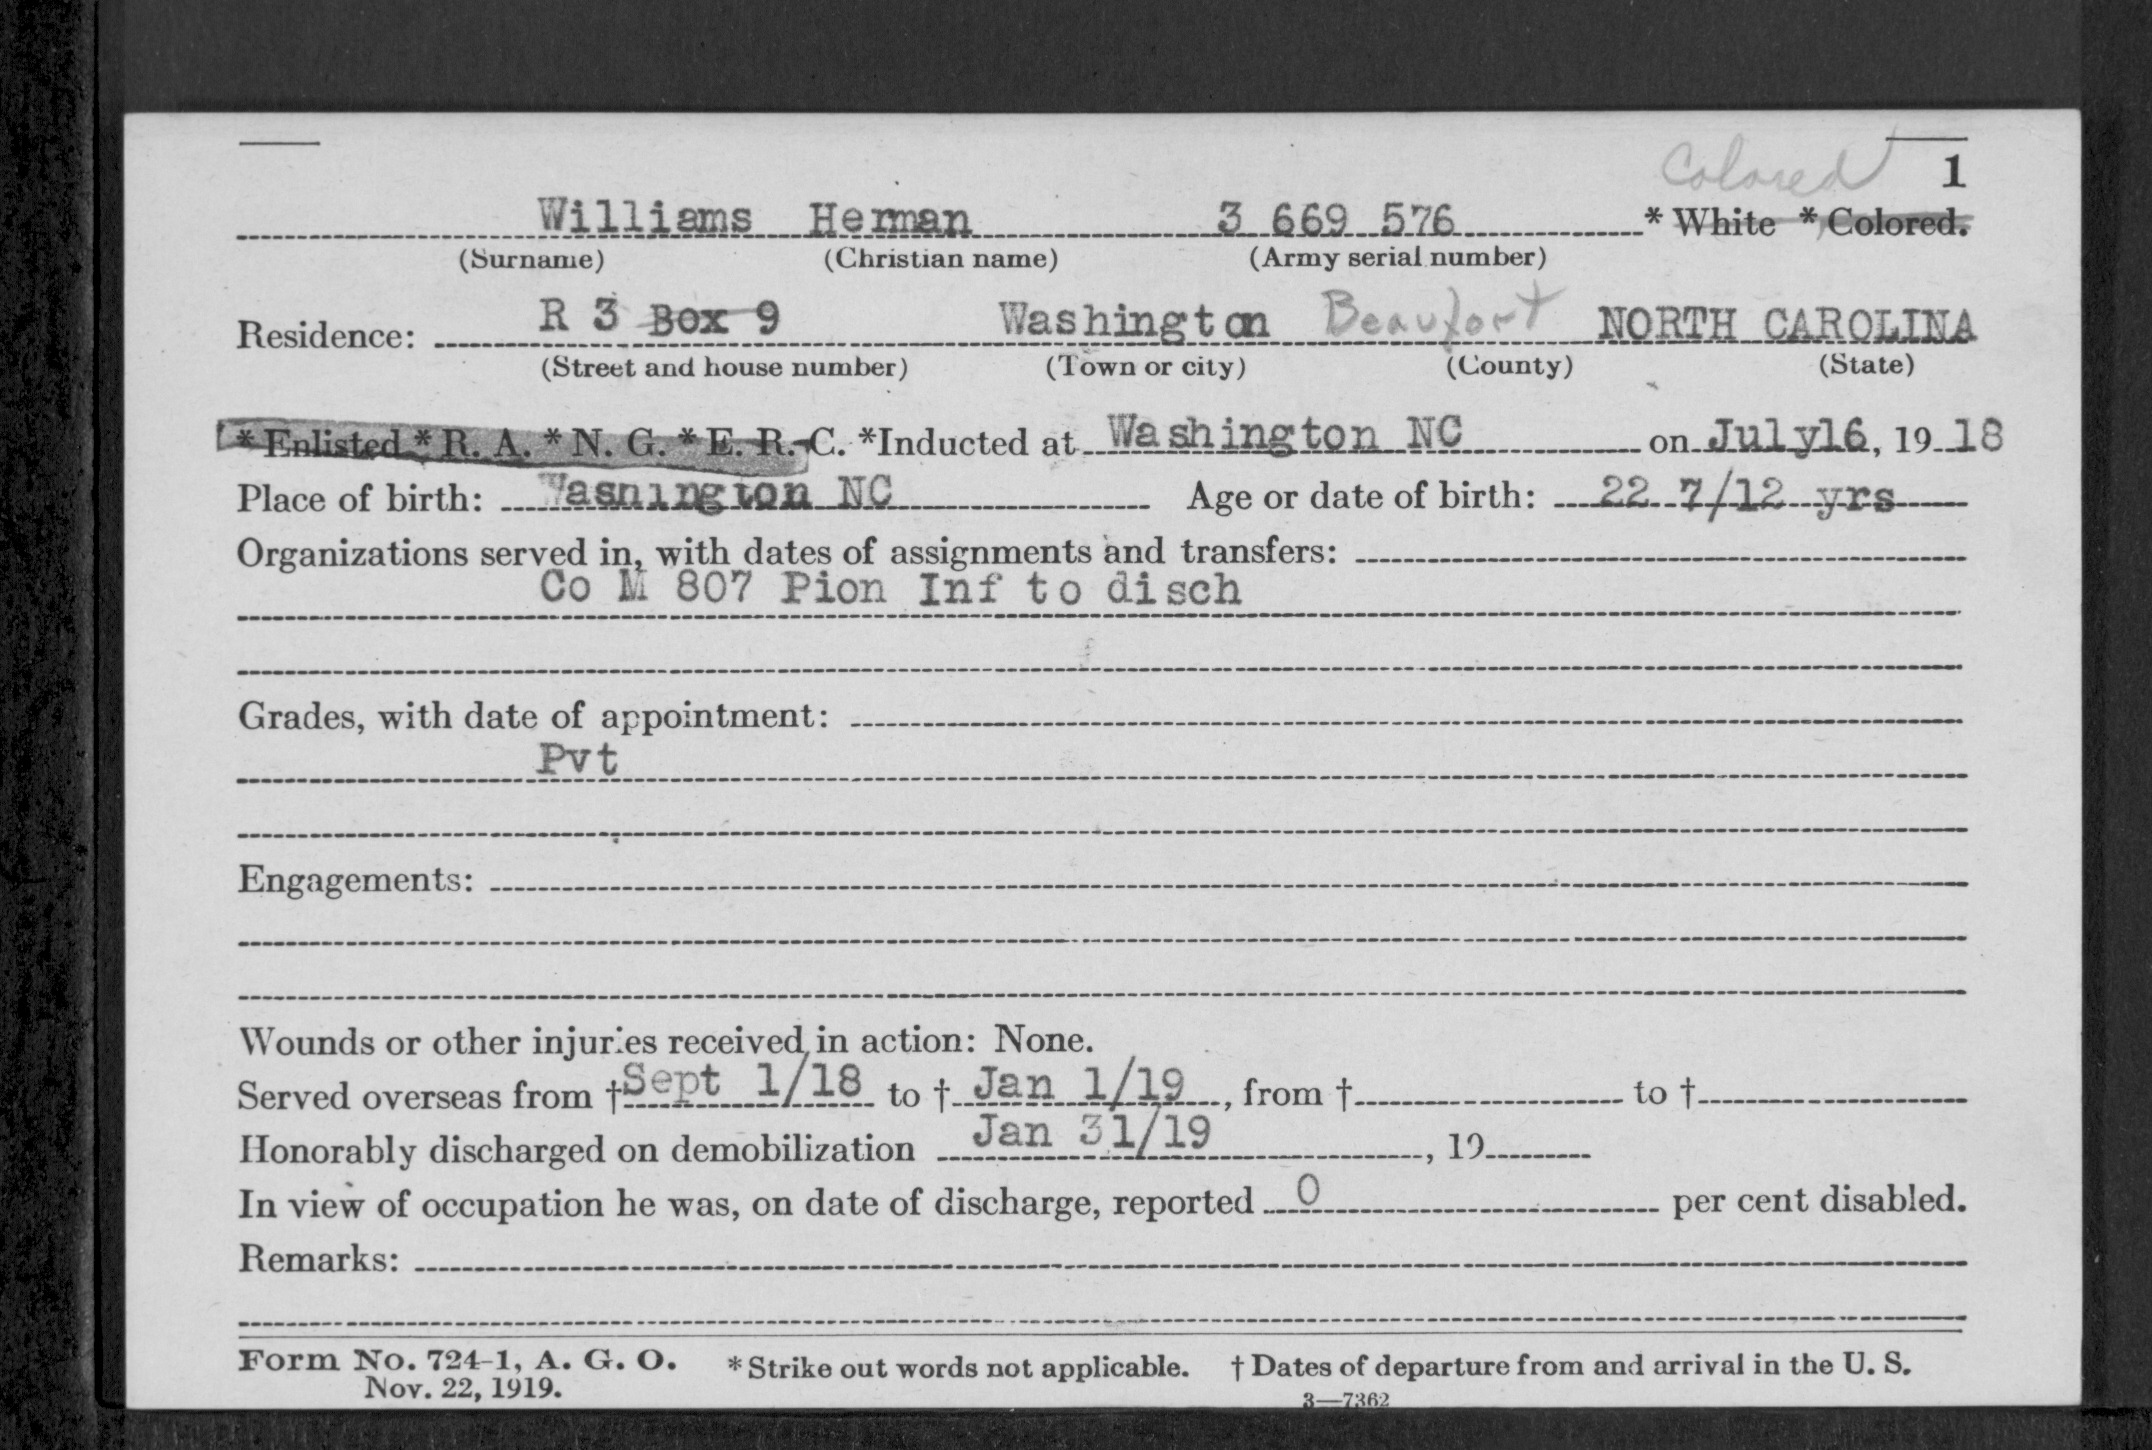 Colored 1
Williams Herman 3 669 576 * White * Colored.
(Surname) (Christian name) (Army serial number)
Residence: R 3 Box 9 Washington Beaufort NORTH CAROLINA
(Street and house number) (Town or city) (County) (State)
* Enlisted * R. A. * N. G. * E. R. C. *Inducted at Washington NC on July16, 19 18
Place of birth: Washington NC Age or date of birth: 22 7/12 yrs
Organizations served in, with dates of assignments and transfers:
Co M 807 Pion Inf to disch
Grades, with date of appointment:
Pvt
Engagements:
Wounds or other injuries received in action: None.
Served overseas from † Sept 1/18 to † Jan 1/19, from † to †
Honorably discharged on demobilization Jan 31/19, 19
In view of occupation he was, on date of discharge, reported 0 per cent disabled.
Remarks:
Form No. 724-1, A. G. O. * Strike out words not applicable. † Dates of departure from and arrival in the U. S.
Nov. 22, 1919. 3—7362